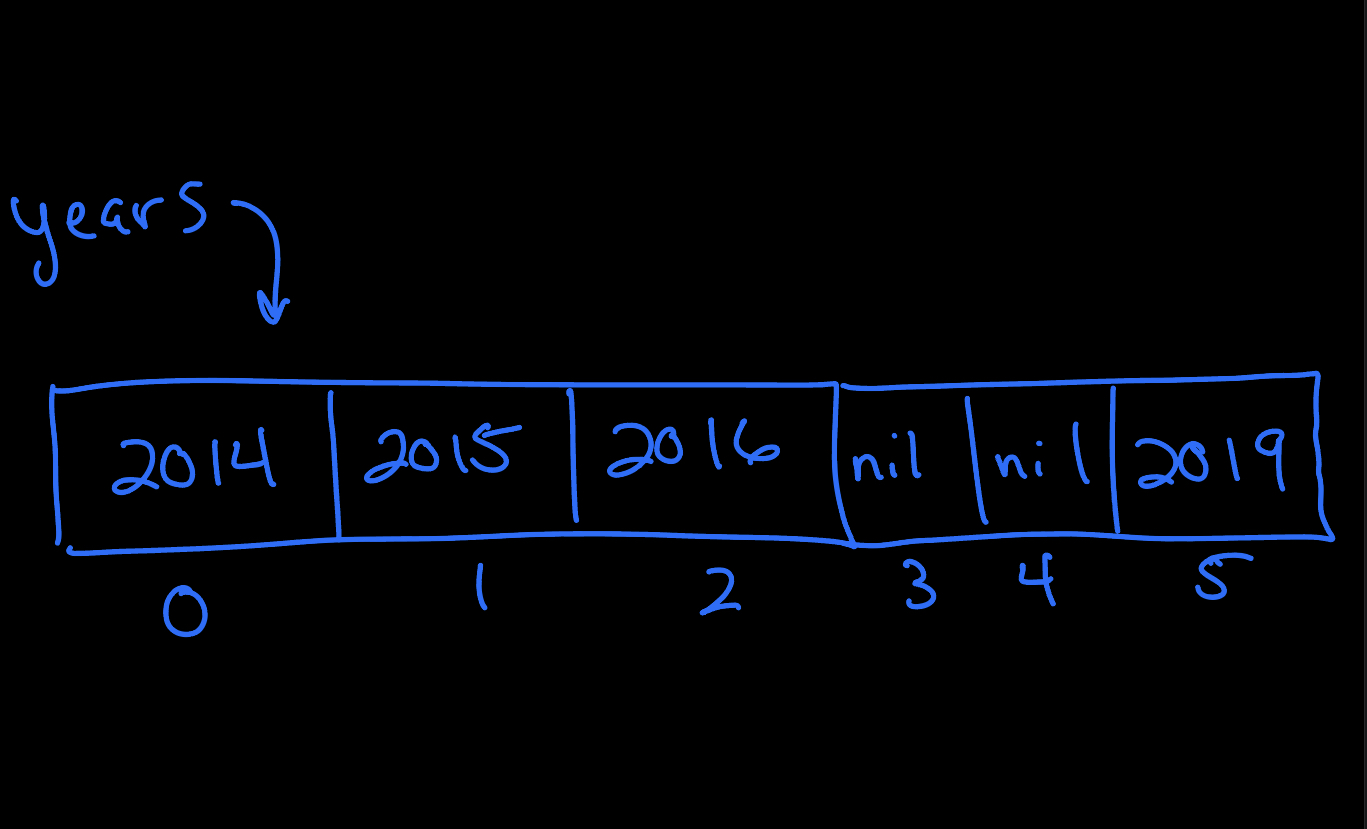 years
2014 2015 2016 nil nil 2019
0 1 2 3 4 5